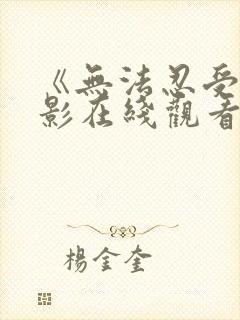 《無法忍受
影在綫觀看
楊金奎